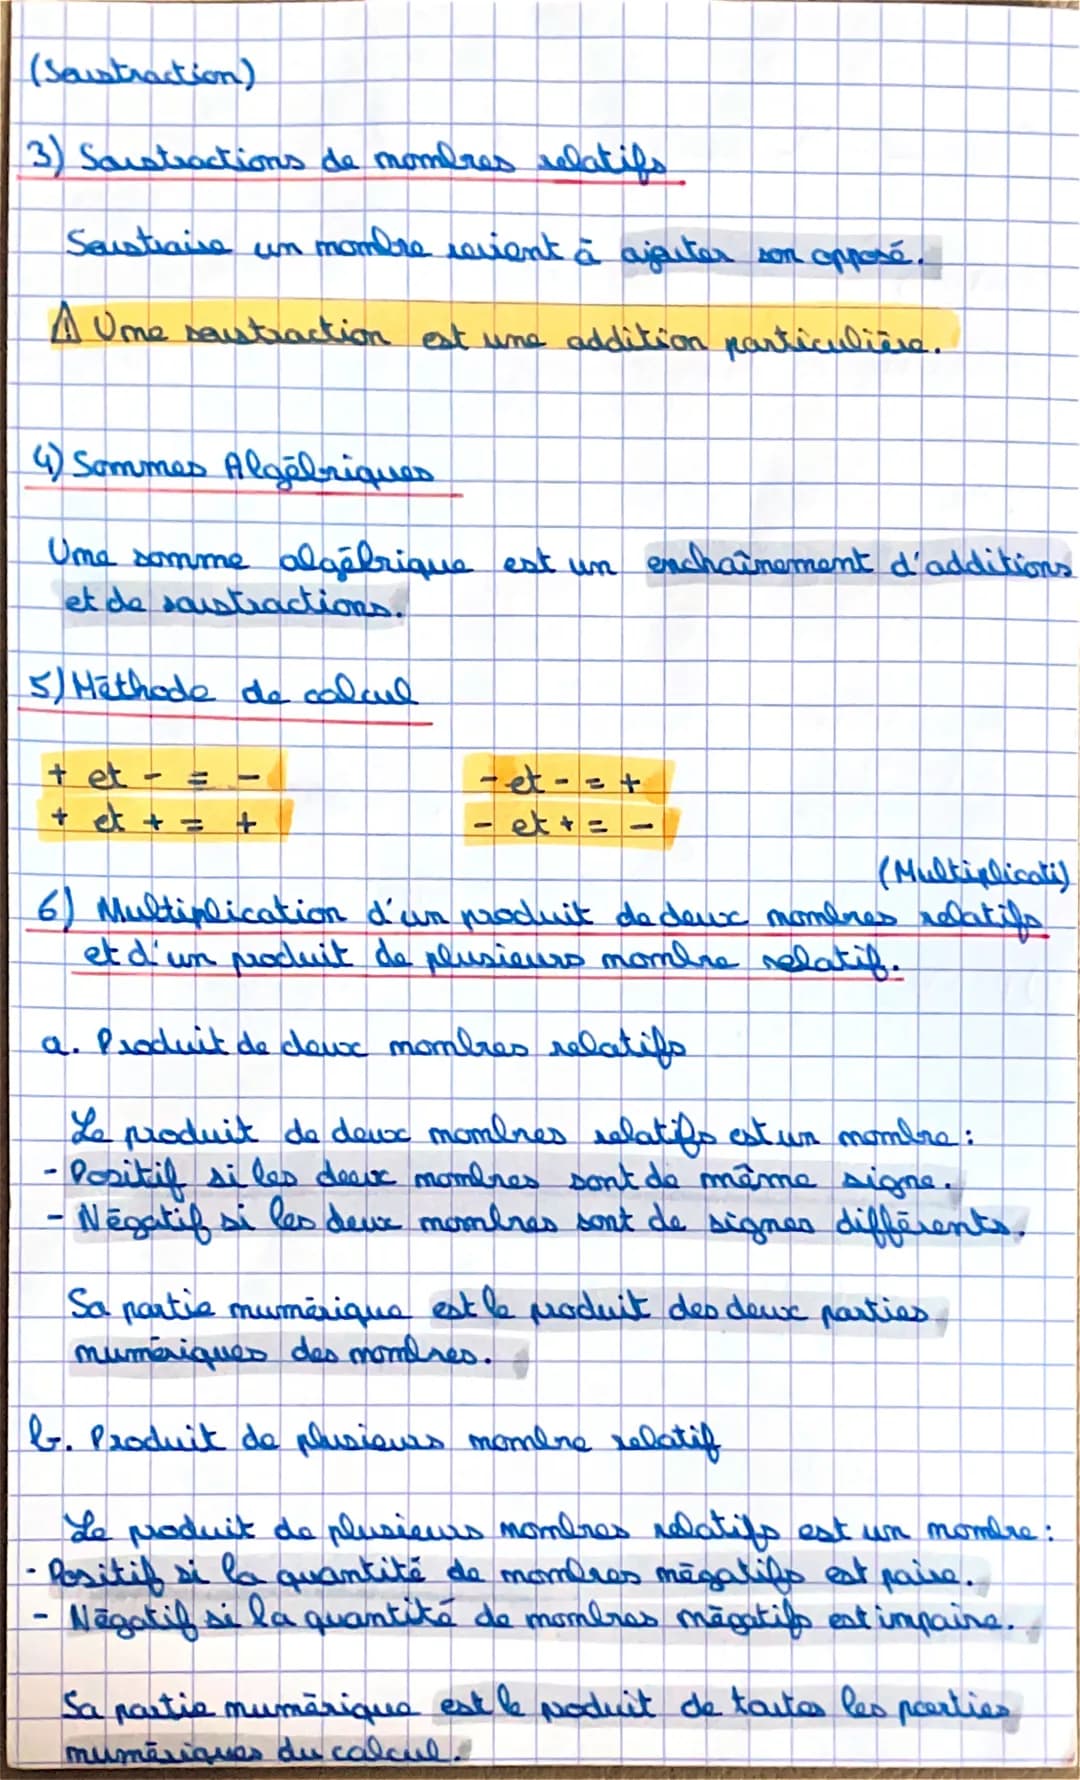 (Soustraction)
3) Soustractions de nombres relatifs
Soustraire un nombre revient à ajouter son opposé.
⚠ Une soustraction est une addition particulière.
4) Sommes Algébriques
Une somme algébrique est un enchaînement d'additions
et de soustractions.
5) Méthode de calcul
+ et - = -
- et - = +
+ et + = +
- et + = -
(Multiplicati)
6) Multiplication d'un produit de deux nombres relatifs
et d'un produit de plusieurs nombre relatif.
a. Produit de deux nombres relatifs
Le produit de deux nombres relatifs est un nombre :
- Positif si les deux nombres sont de même signe.
- Négatif si les deux nombres sont de signes différents.
Sa partie numérique est le produit des deux parties
numériques des nombres.
b. Produit de plusieurs nombre relatif
Le produit de plusieurs nombres relatifs est un nombre :
- Positif si la quantité de nombres négatifs est paire.
- Négatif si la quantité de nombres négatifs est impaire.
Sa partie numérique est le produit de toutes les parties
numériques du calcul.